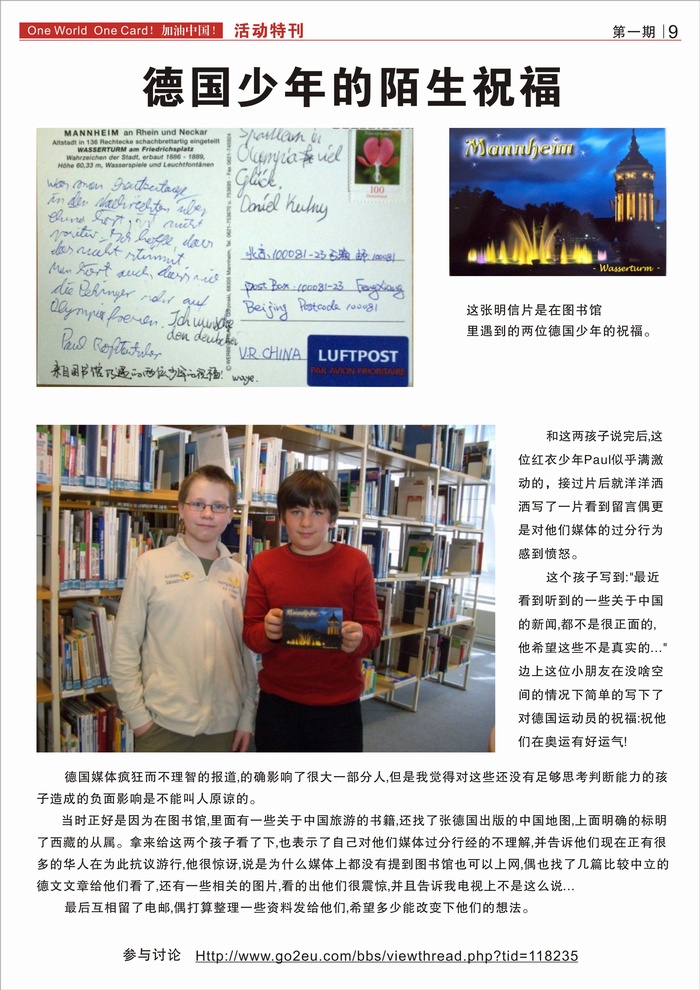 One World One Card! 加油中国!
活动特刊
第一期 | 9
德国少年的陌生祝福
MANNHEIM an Rhein und Neckar
Altstadt in 136 Rechtecke schachbrettartig eingeteilt
WASSERTURM am Friedrichsplatz
Wahrzeichen der Stadt, erbaut 1886 - 1889,
Höhe 60,33 m, Wasserspiele und Leuchtfontänen
was man heutzutage
in den Nachrichten über
China hört, ist nicht
positiv. Ich hoffe, dass
das nicht stimmt
Man hört auch, dass sich
die Pekinger sehr auf
Olympia freuen.
Paul
Ich wünsche
den deutschen
Sportlern in
Olympia viel
Glück.
Daniel
100
北京,100081-23
邮 100081
post Box: 100081-23
Beijing Postcode 100081
V.R CHINA
LUFTPOST
PAR AVION PRIORITAIRE
来自图书馆巧遇的两位少年的祝福!
Mannheim
- Wasserturm -
这张明信片是在图书馆
里遇到的两位德国少年的祝福。
和这两孩子说完后,这
位红衣少年Paul似乎满激
动的，接过片后就洋洋洒
洒写了一片看到留言偶更
是对他们媒体的过分行为
感到愤怒。
这个孩子写到:"最近
看到听到的一些关于中国
的新闻,都不是很正面的,
他希望这些不是真实的..."
边上这位小朋友在没啥空
间的情况下简单的写下了
对德国运动员的祝福:祝他
们在奥运有好运气!
Mannheim
德国媒体疯狂而不理智的报道,的确影响了很大一部分人,但是我觉得对这些还没有足够思考判断能力的孩
子造成的负面影响是不能叫人原谅的。
当时正好是因为在图书馆,里面有一些关于中国旅游的书籍,还找了张德国出版的中国地图,上面明确的标明
了西藏的从属。拿来给这两个孩子看了下,也表示了自己对他们媒体过分行经的不理解,并告诉他们现在正有很
多的华人在为此抗议游行,他很惊讶,说是为什么媒体上都没有提到图书馆也可以上网,偶也找了几篇比较中立的
德文文章给他们看了,还有一些相关的图片,看的出他们很震惊,并且告诉我电视上不是这么说...
最后互相留了电邮,偶打算整理一些资料发给他们,希望多少能改变下他们的想法。
参与讨论 Http://www.go2eu.com/bbs/viewthread.php?tid=118235